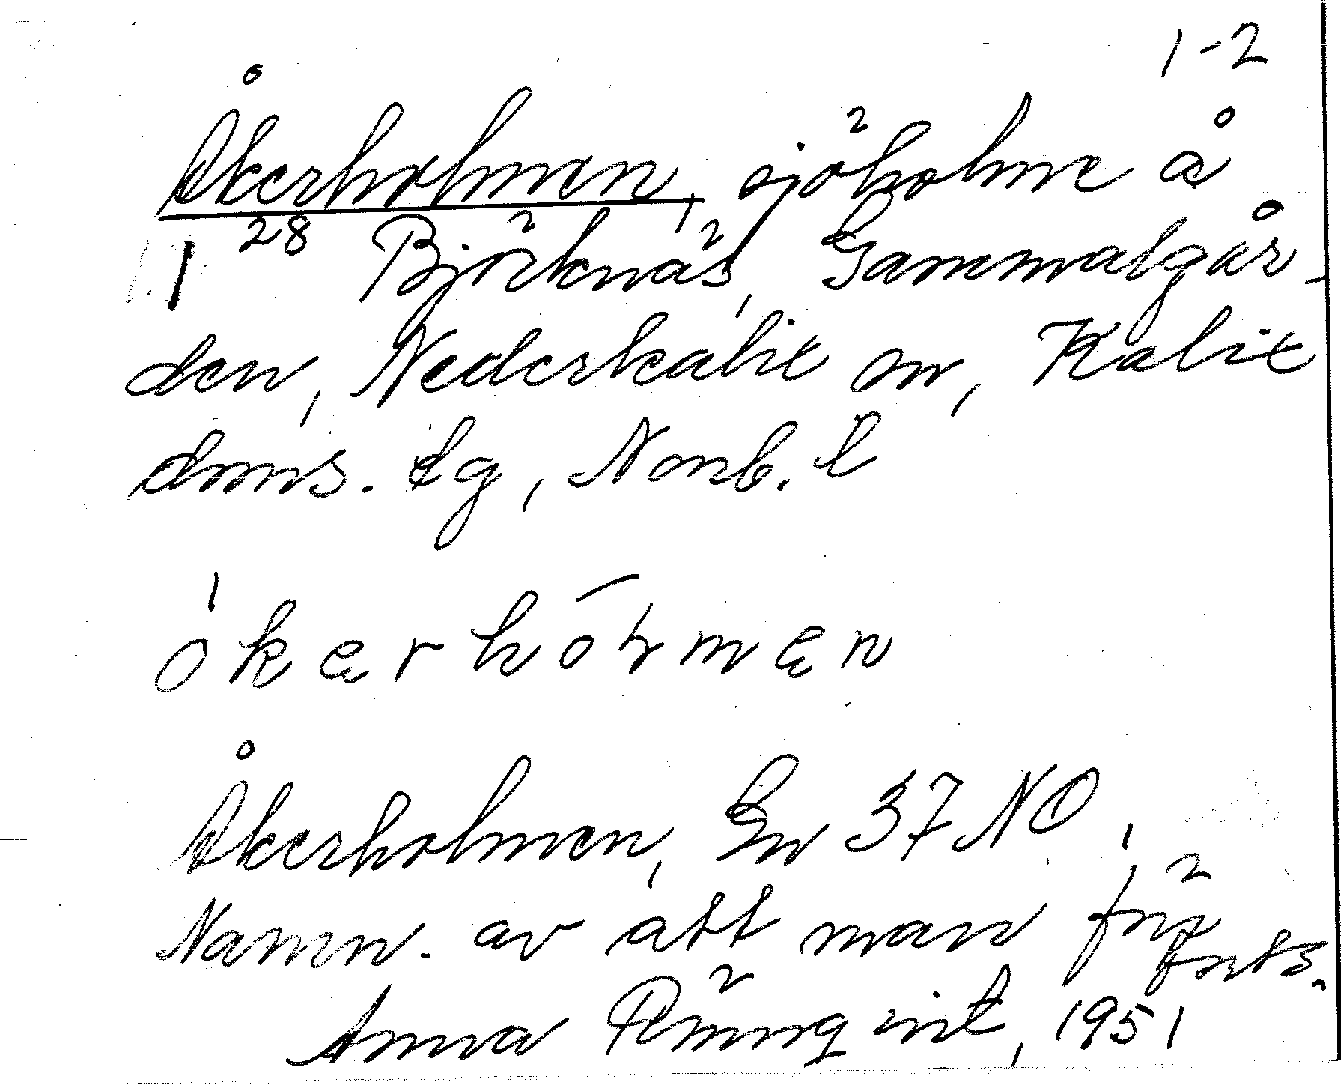 1-2
Åkerholmen, sjöholme å
1²⁸ Björknäs, Gammalgår-
den, Nederkalix sn, Kalix
doms. tg, Norrb. l
ókerhólmen
Åkerholmen, En 37 NO,
Namn. av att man för
forts.
Anna Rönnqvist, 1951